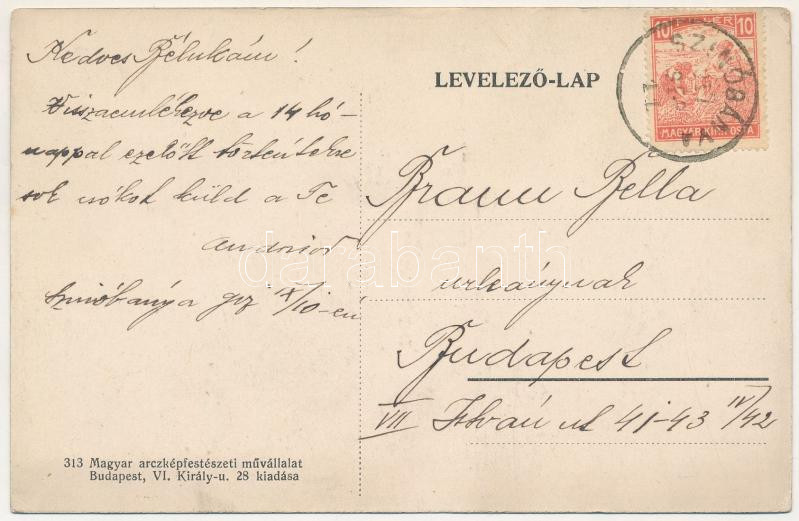 Kedves Bélukám!
Visszaemlékezve a 14 hó-
nappal ezelőtt történtekre
sok csókot küld a Te
Andorod
Szinóbánya 917 IX/10-én
313 Magyar arczképfestészeti művállalat
Budapest, VI. Király-u. 28 kiadása
LEVELEZŐ-LAP
10 FILLÉR 10
MAGYAR KIR. POSTA
SZINÓBÁNYA
Braun Bella
urleánynak
Budapest
VII István út 41-43 IV/42
darabanth